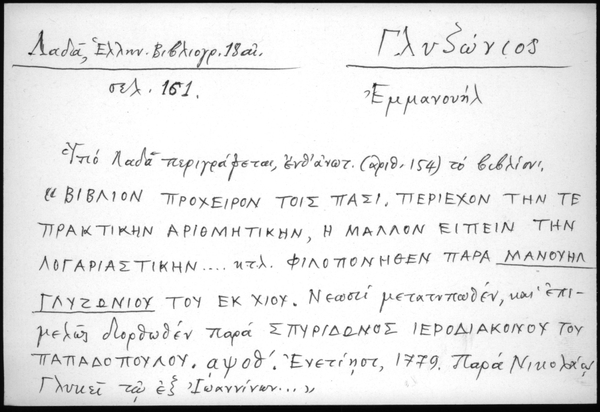 Λαδᾶ, Ἑλλην. Βιβλιογρ. 18 αἰ.
Γλυζώνιος
σελ. 161.
Ἐμμανουήλ
Ὑπό Λαδᾶ περιγράφεται, ἔνθ' ἀνωτ. (ἀριθ. 154) τό βιβλίον:
«ΒΙΒΛΙΟΝ ΠΡΟΧΕΙΡΟΝ ΤΟΙΣ ΠΑΣΙ. ΠΕΡΙΕΧΟΝ ΤΗΝ ΤΕ
ΠΡΑΚΤΙΚΗΝ ΑΡΙΘΜΗΤΙΚΗΝ, Η ΜΑΛΛΟΝ ΕΙΠΕΙΝ ΤΗΝ
ΛΟΓΑΡΙΑΣΤΙΚΗΝ.... κτλ. ΦΙΛΟΠΟΝΗΘΕΝ ΠΑΡΑ ΜΑΝΟΥΗΛ
ΓΛΥΖΩΝΙΟΥ ΤΟΥ ΕΚ ΧΙΟΥ. Νεωστί μετατυπωθέν, καί ἐπι-
μελῶς διορθωθέν παρά ΣΠΥΡΙΔΩΝΟΣ ΙΕΡΟΔΙΑΚΟΝΟΥ ΤΟΥ
ΠΑΠΑΔΟΠΟΥΛΟΥ. αψοθ'. Ἐνετίῃσι, 1779. Παρά Νικολάῳ
Γλυκεῖ τῷ ἐξ Ἰωαννίνων...»